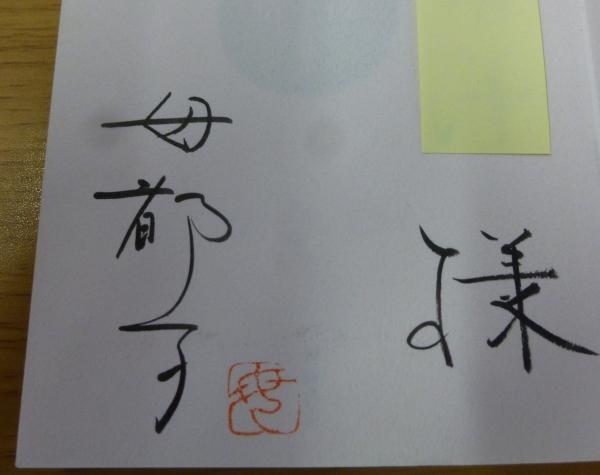 様
母都子